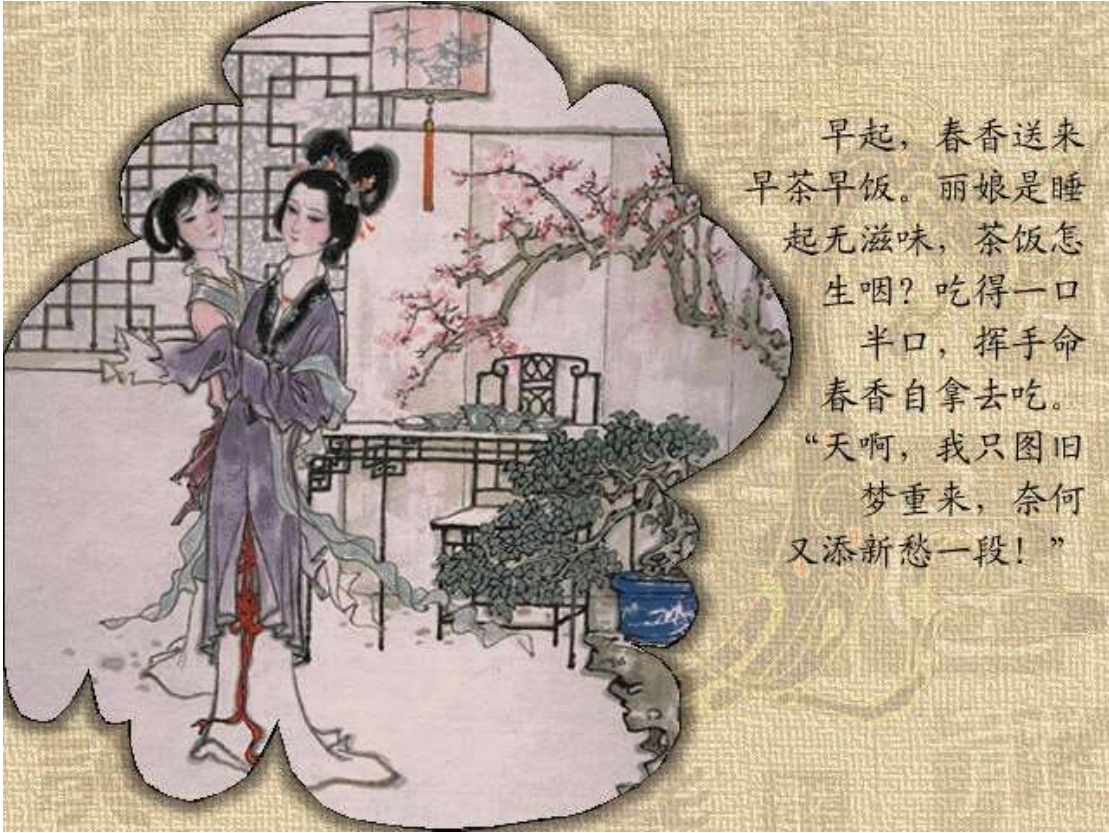 早起，春香送来
早茶早饭。丽娘是睡
起无滋味，茶饭怎
生咽？吃得一口
半口，挥手命
春香自拿去吃。
“天啊，我只图旧
梦重来，奈何
又添新愁一段！”